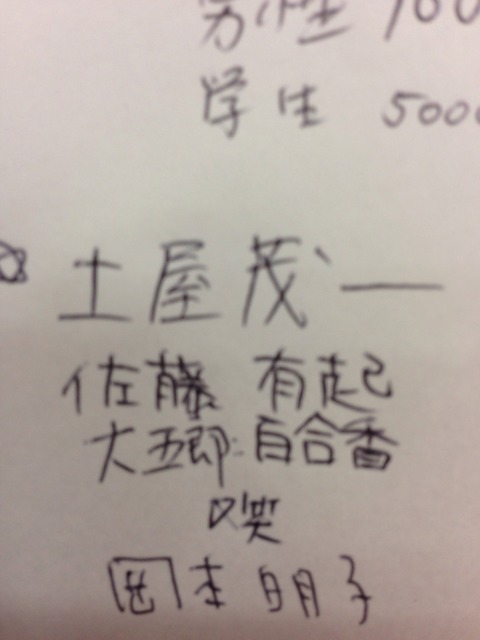 男性 100
学生 5000
土屋 茂一
佐藤 有起
大五郎 百合香
咲
岡本 明子